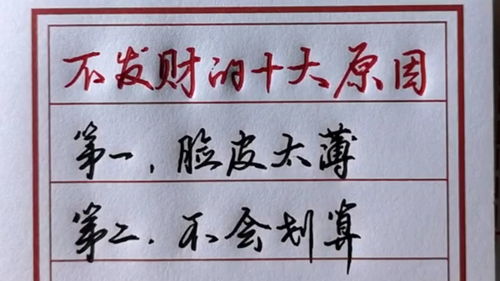 不发财的十大原因
第一，脸皮太薄
第二．不会划算